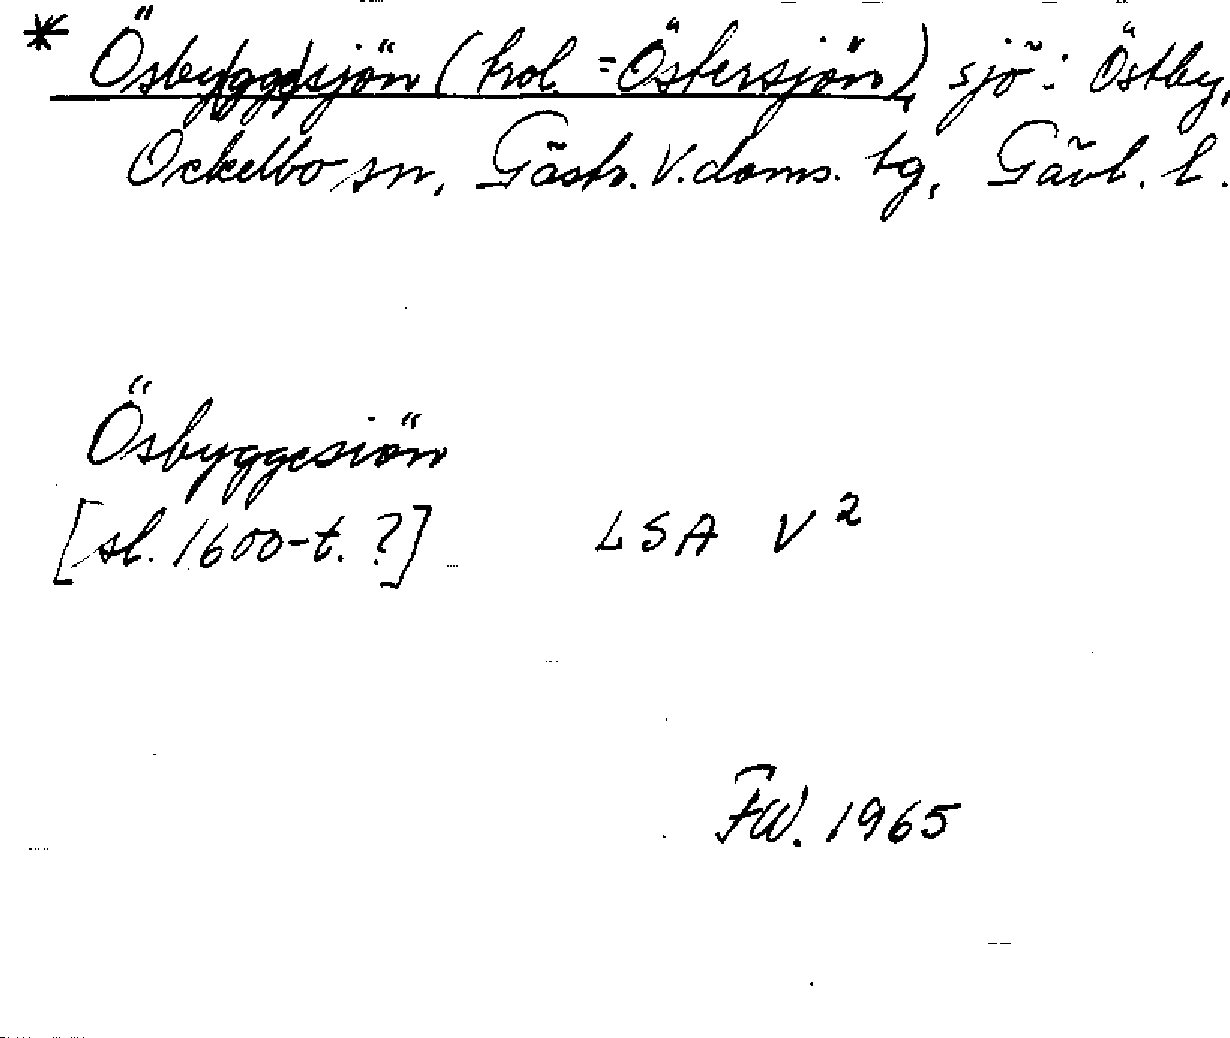 * Ösby(gge)sjön (trol. = Östersjön), sjö: Östby,
Ockelbo sn, Gästr. V. doms. tg, Gävl. l.
Ösbyggesiön
[sl. 1600-t. ?] LSA V²
FW. 1965